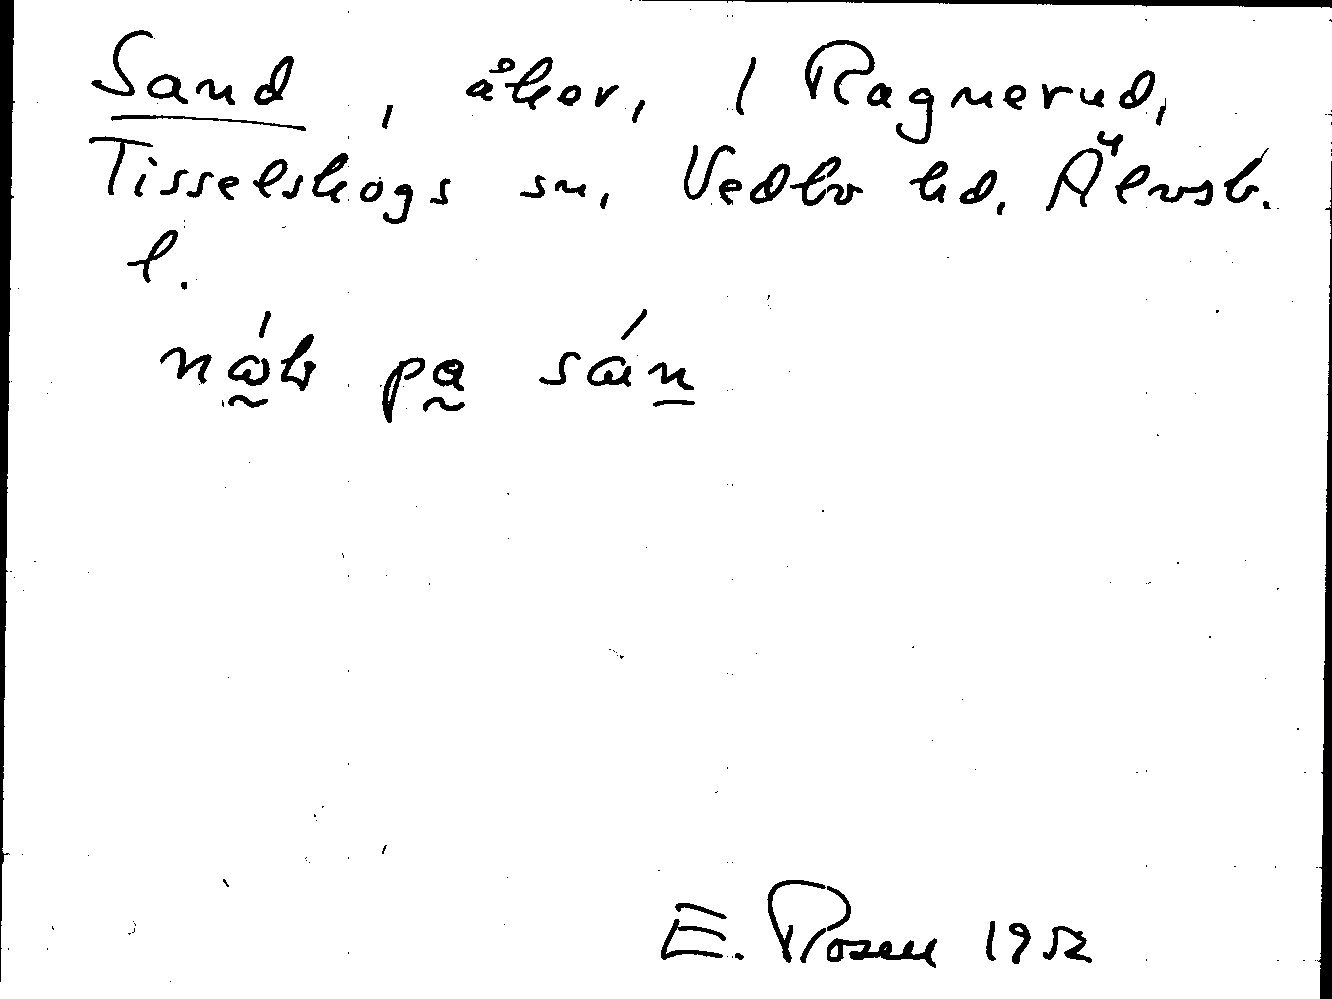 Sand, åker, 1 Ragnerud,
Tisselskogs sn, Vedbo hd, Älvsb.
l.
sán
E. Rosen 1952